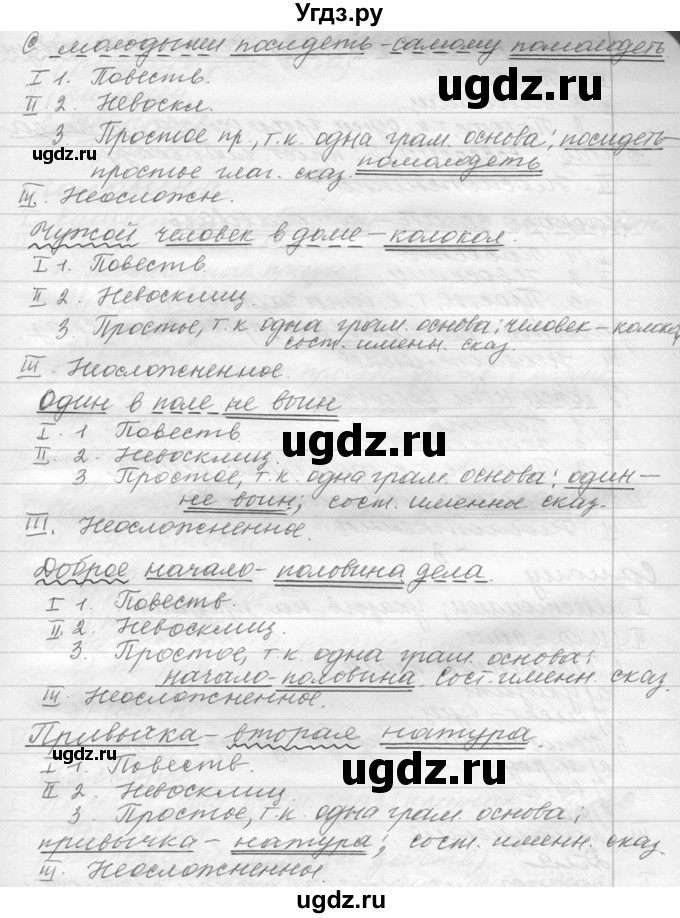 Угдз.ру
С молодыми посидеть - самому помолодеть
I 1. Повеств.
II 2. Невоскл.
3 Простое пр., т.к. одна грам. основа; посидеть-
помолодеть
простые глаг. сказ.
III. Неосложн.
Чужой человек в доме - колокол.
I 1. Повеств.
II 2. Невосклиц.
3. Простое, т.к одна грам. основа; человек - колокол
сост. именн. сказ.
III Неосложненное.
Один в поле не воин
I. 1 Повеств.
II. 2. Невосклиц.
3. Простое, т.к. одна грам. основа: один-
не воин; сост. именное сказ.
III. Неосложненное.
Доброе начало - половина дела.
I 1. Повеств.
II. 2. Невосклиц.
3. Простое, т.к. одна грам. основа;
начало - половина. Сост. именн. сказ.
III Неосложненное.
Привычка - вторая натура.
I 1. Повеств.
II 2. Невосклиц.
3. Простое, т.к. одна грам. основа;
привычка - натура; сост. именн. сказ.
III. Неосложненное.
ugdz.ru
ugdz.ru
ugdz.ru
ugdz.ru
ugdz.ru
ugdz.ru
ugdz.ru
ugdz.ru
ugdz.ru
ugdz.ru
ugdz.ru